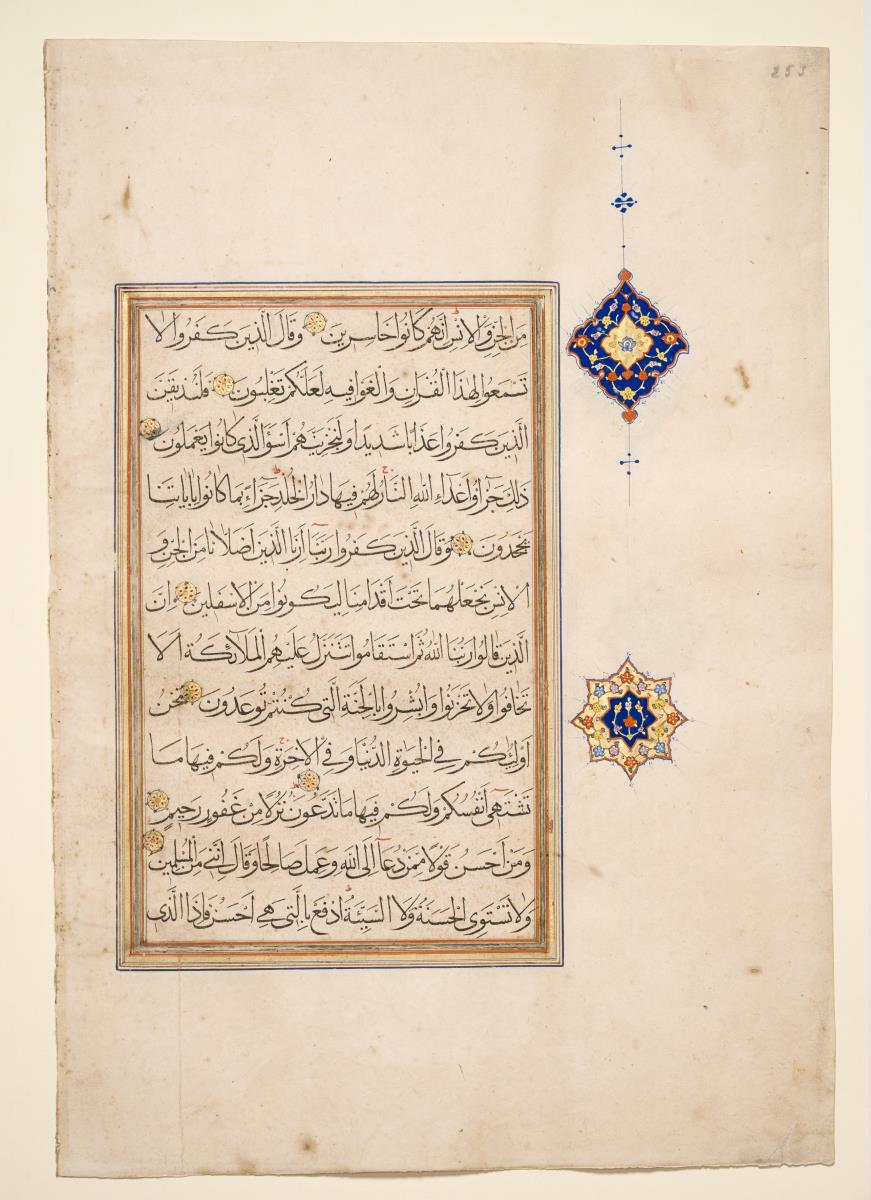 253
مِنَ الْجِنِّ وَالْاِنْسِ اِنَّهُمْ كَانُوا خَاسِرِينَ وَقَالَ الَّذِينَ كَفَرُوا لَا
تَسْمَعُوا لِهٰذَا الْقُرْاٰنِ وَالْغَوْا فِيهِ لَعَلَّكُمْ تَغْلِبُونَ فَلَنُذِيقَنَّ
الَّذِينَ كَفَرُوا عَذَابًا شَدِيدًا وَلَنَجْزِيَنَّهُمْ اَسْوَاَ الَّذِى كَانُوا يَعْمَلُونَ
ذٰلِكَ جَزَاءُ اَعْدَاءِ اللهِ النَّارُ لَهُمْ فِيهَا دَارُ الْخُلْدِ جَزَاءً بِمَا كَانُوا بِاٰيَاتِنَا
يَجْحَدُونَ وَقَالَ الَّذِينَ كَفَرُوا رَبَّنَا اَرِنَا الَّذَيْنِ اَضَلَّانَا مِنَ الْجِنِّ وَ
الْاِنْسِ نَجْعَلْهُمَا تَحْتَ اَقْدَامِنَا لِيَكُونُوا مِنَ الْاَسْفَلِينَ اِنَّ
الَّذِينَ قَالُوا رَبُّنَا اللهُ ثُمَّ اسْتَقَامُوا تَتَنَزَّلُ عَلَيْهِمُ الْمَلَائِكَةُ اَلَّا
تَخَافُوا وَلَا تَحْزَنُوا وَاَبْشِرُوا بِالْجَنَّةِ الَّتِى كُنْتُمْ تُوعَدُونَ نَحْنُ
اَوْلِيَاؤُكُمْ فِى الْحَيٰوةِ الدُّنْيَا وَفِى الْاٰخِرَةِ وَلَكُمْ فِيهَا مَا
تَشْتَهِى اَنْفُسُكُمْ وَلَكُمْ فِيهَا مَا تَدَّعُونَ نُزُلًا مِنْ غَفُورٍ رَحِيمٍ
وَمَنْ اَحْسَنُ قَوْلًا مِمَّنْ دَعَا اِلَى اللهِ وَعَمِلَ صَالِحًا وَقَالَ اِنَّنِى مِنَ الْمُسْلِمِينَ
وَلَا تَسْتَوِى الْحَسَنَةُ وَلَا السَّيِّئَةُ اِدْفَعْ بِالَّتِى هِىَ اَحْسَنُ فَاِذَا الَّذِى